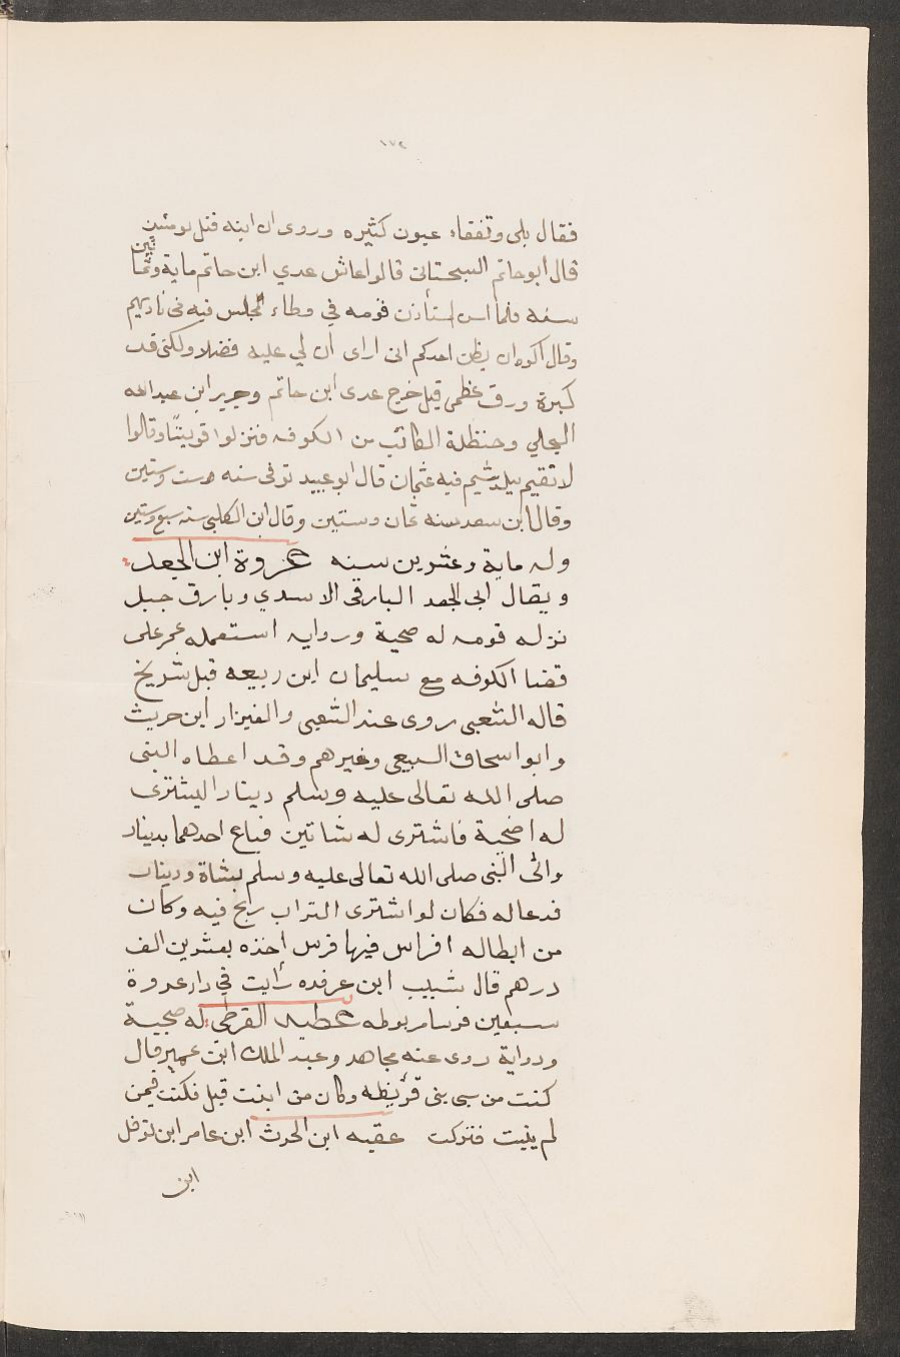 ١٧٢
فقال بلى وتفقاء عيون كثيره وروى ان ابنه قتل يومئذ
قال ابو حاتم السجستانى قالوا عاش عدي ابن حاتم ماية وثما
نين
سنه فلما اسن استأذن قومه في وطاء لجلس فيه فى ناديهم
وقال اكره ان يظن احدكم انى ارى ان لي عليه فضلا ولكنى قد
كبرة ورق عظمى قيل خرج عدى ابن حاتم وجرير ابن عبد الله
البجلي وحنظلة الكاتب من الكوفه فنزلوا قرقيسا وقالوا
لا نقيم ببلد شتم فيه عثمان قال ابو عبيد توفى سنه ست وستين
وقال ابن سعد سنه ثمان وستين وقال ابن الكلبى سنه سبع وستين
وله ماية وعشرين سنه عروة ابن الجعد
ويقال ابى الجعد البارقى الاسدي وبارق جبل
نزله قومه له صحبة وروايه استعمله عمر على
قضا الكوفه مع سليمان ابن ربيعه قبل شريح
قاله الشعبى روى عند الشعبى والفيزار ابن حريث
وابو اسحاق السبيعى وغيرهم وقد اعطاه النبى
صلى الله تعالى عليه وسلم دينارا ليشترى
له اضحية فاشترى له شاتين فباع احدهما بدينار
واتى النبى صلى الله تعالى عليه وسلم بشاة ودينار
فدعا له فكان لو اشترى التراب ربح فيه وكان
من ابطاله افراس فيها فرس اخذه بعشرين الف
درهم قال شبيب ابن عرفده رأيت في دار عروة
سبعين فرسا مربوطه عطيه القرظي له صحبة
ورواية روى عنه مجاهد وعبد الملك ابن عمير قال
كنت من سبى بنى قريظه وكان من ابنت قتل فكنت فيمن
لم ينبت فتركت عقبه ابن الحرث ابن عامر ابن نوفل
ابن